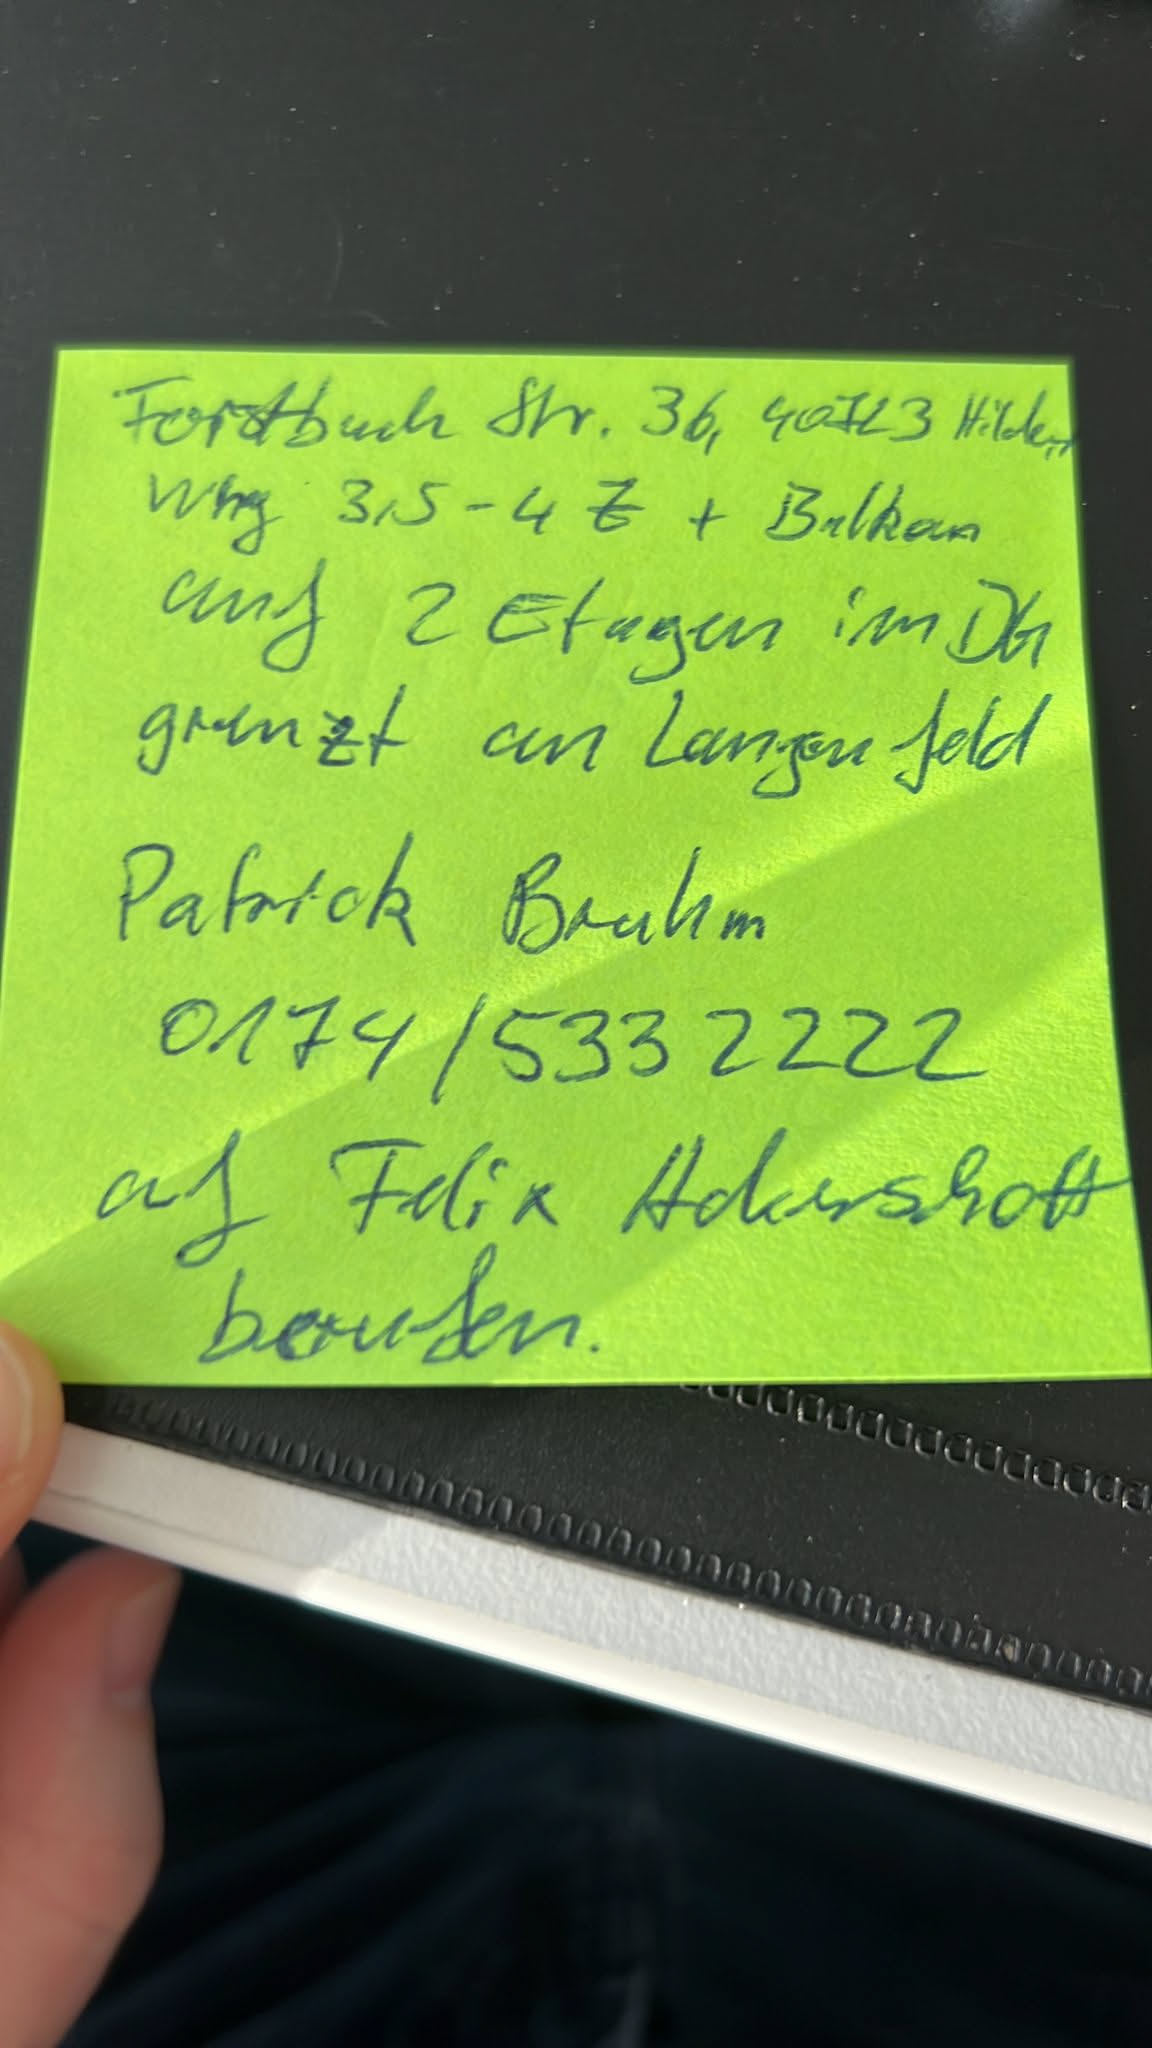 Forstbach Str. 36, 40723 Hilden
Whg 3,5 - 4 Z + Balkon
auf 2 Etagen im DG
grenzt an Langenfeld
Patrick Bruhm
0174/5332222
auf Felix
berufen.